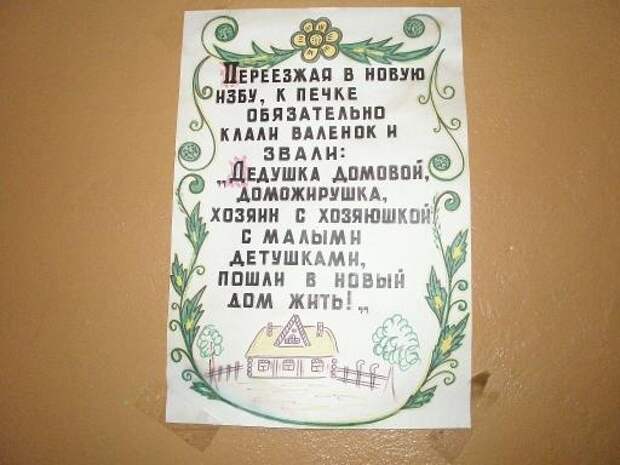 Переезжая в новую
избу, к печке
обязательно
клали валенок и
звали:
„Дедушка домовой,
доможирушка,
хозяин с хозяюшкой
с малыми
детушками,
пошли в новый
дом жить!„